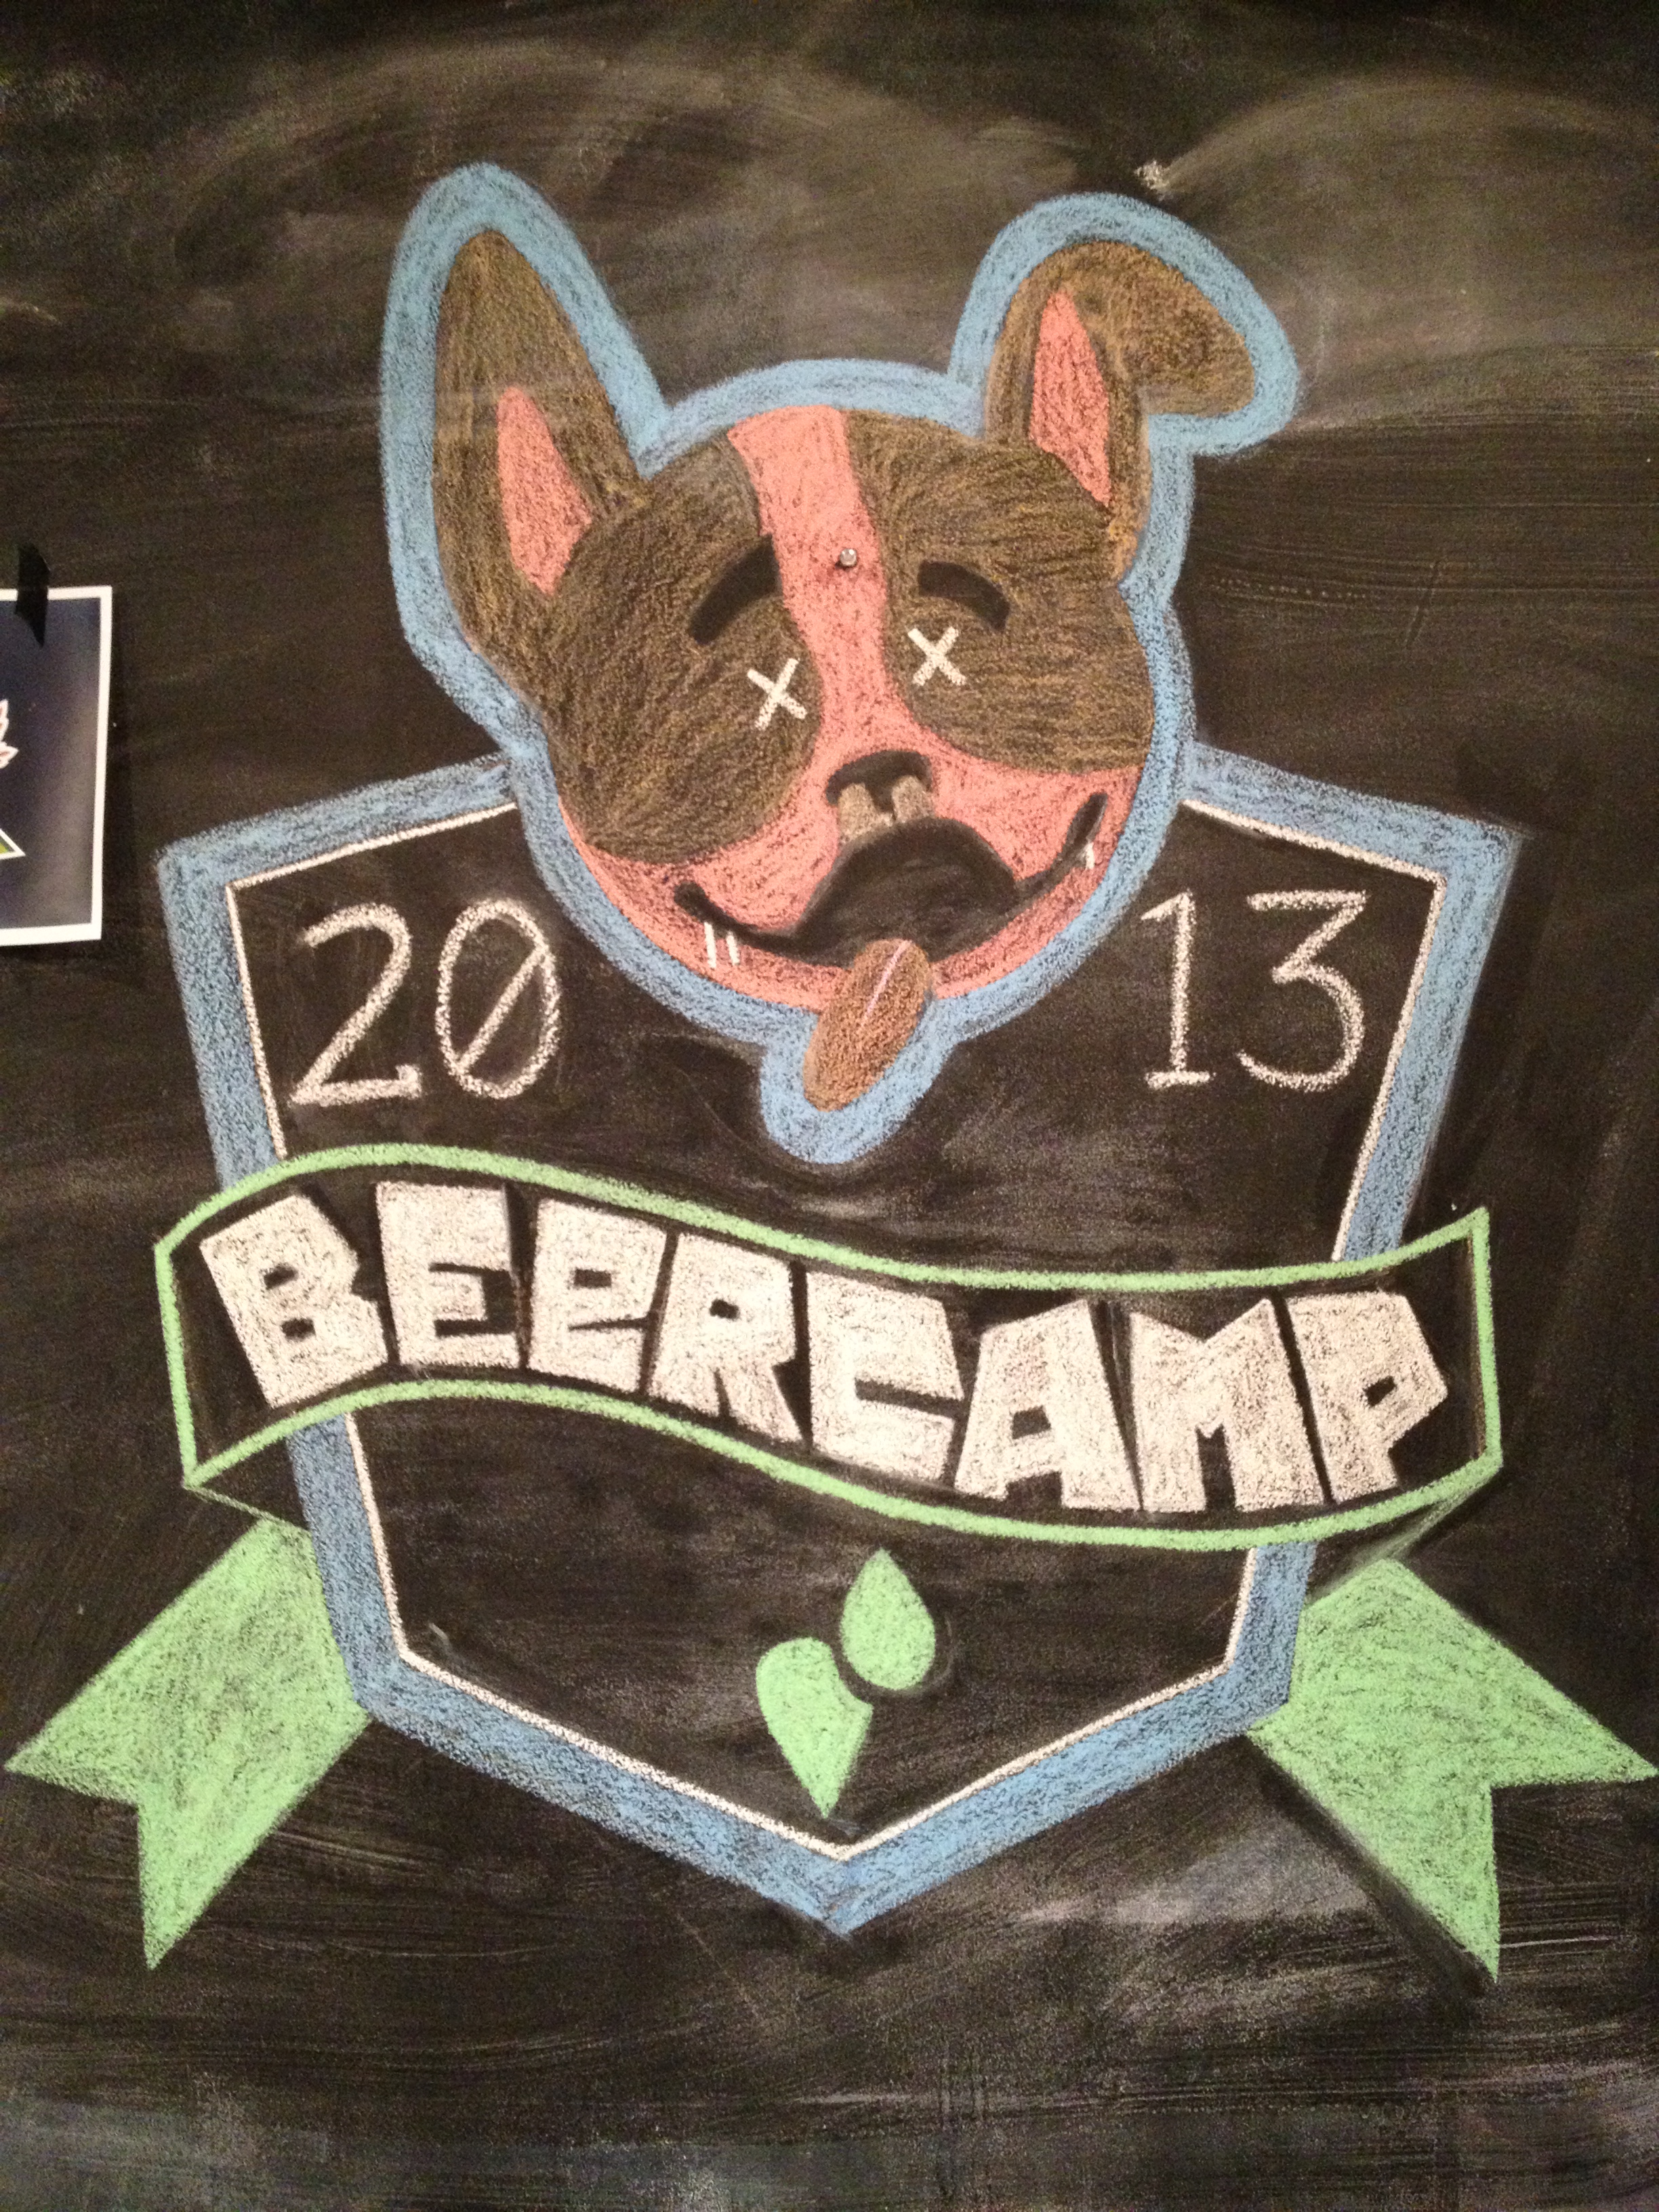 2013
BEERCAMP